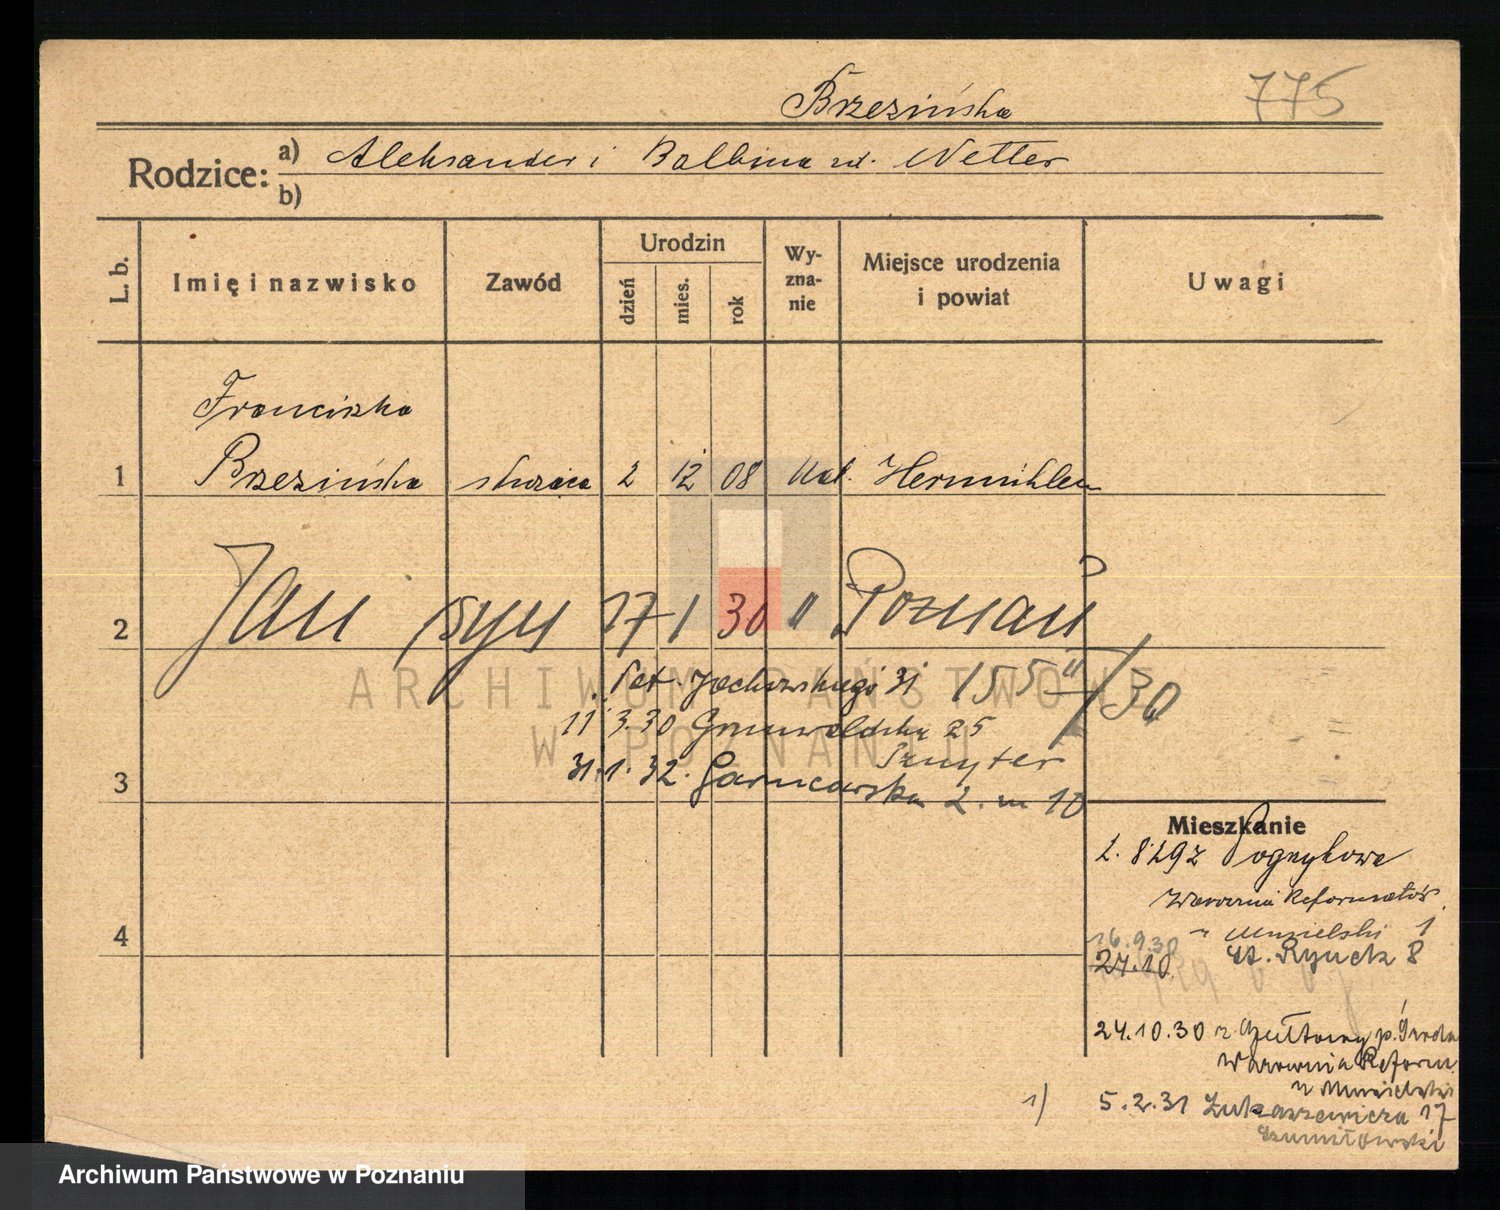 Brzezińska 775
Rodzice: a) Aleksander i Balbina zd. Netter
b)
L. b. Imię i nazwisko Zawód Urodzin dzień mies. rok Wyznanie Miejsce urodzenia i powiat Uwagi
Franciszka
1 Brzezińska służąca 2 12 08 kat. Hermühlen
2 Jan syn 17 1 30 " Poznań
Jochowskiego 31 155 II/30
11 3.30 Grunwaldzka 25
Sznyter
3 31.1.32. Garncarska 2. m 10
Mieszkanie
Pogrzybowa
Warownia Reformatów
Musielski 1
4 16.9.30
24.10 St. Rynek 8
24.10.30 z Gułtowy p. Środa
Warownia Reform.
u Musielski
1) 5.2.31 Łukaszewicza 17
Szumiłowski
ARCHIWUM PAŃSTWOWE
W POZNANIU
Archiwum Państwowe w Poznaniu